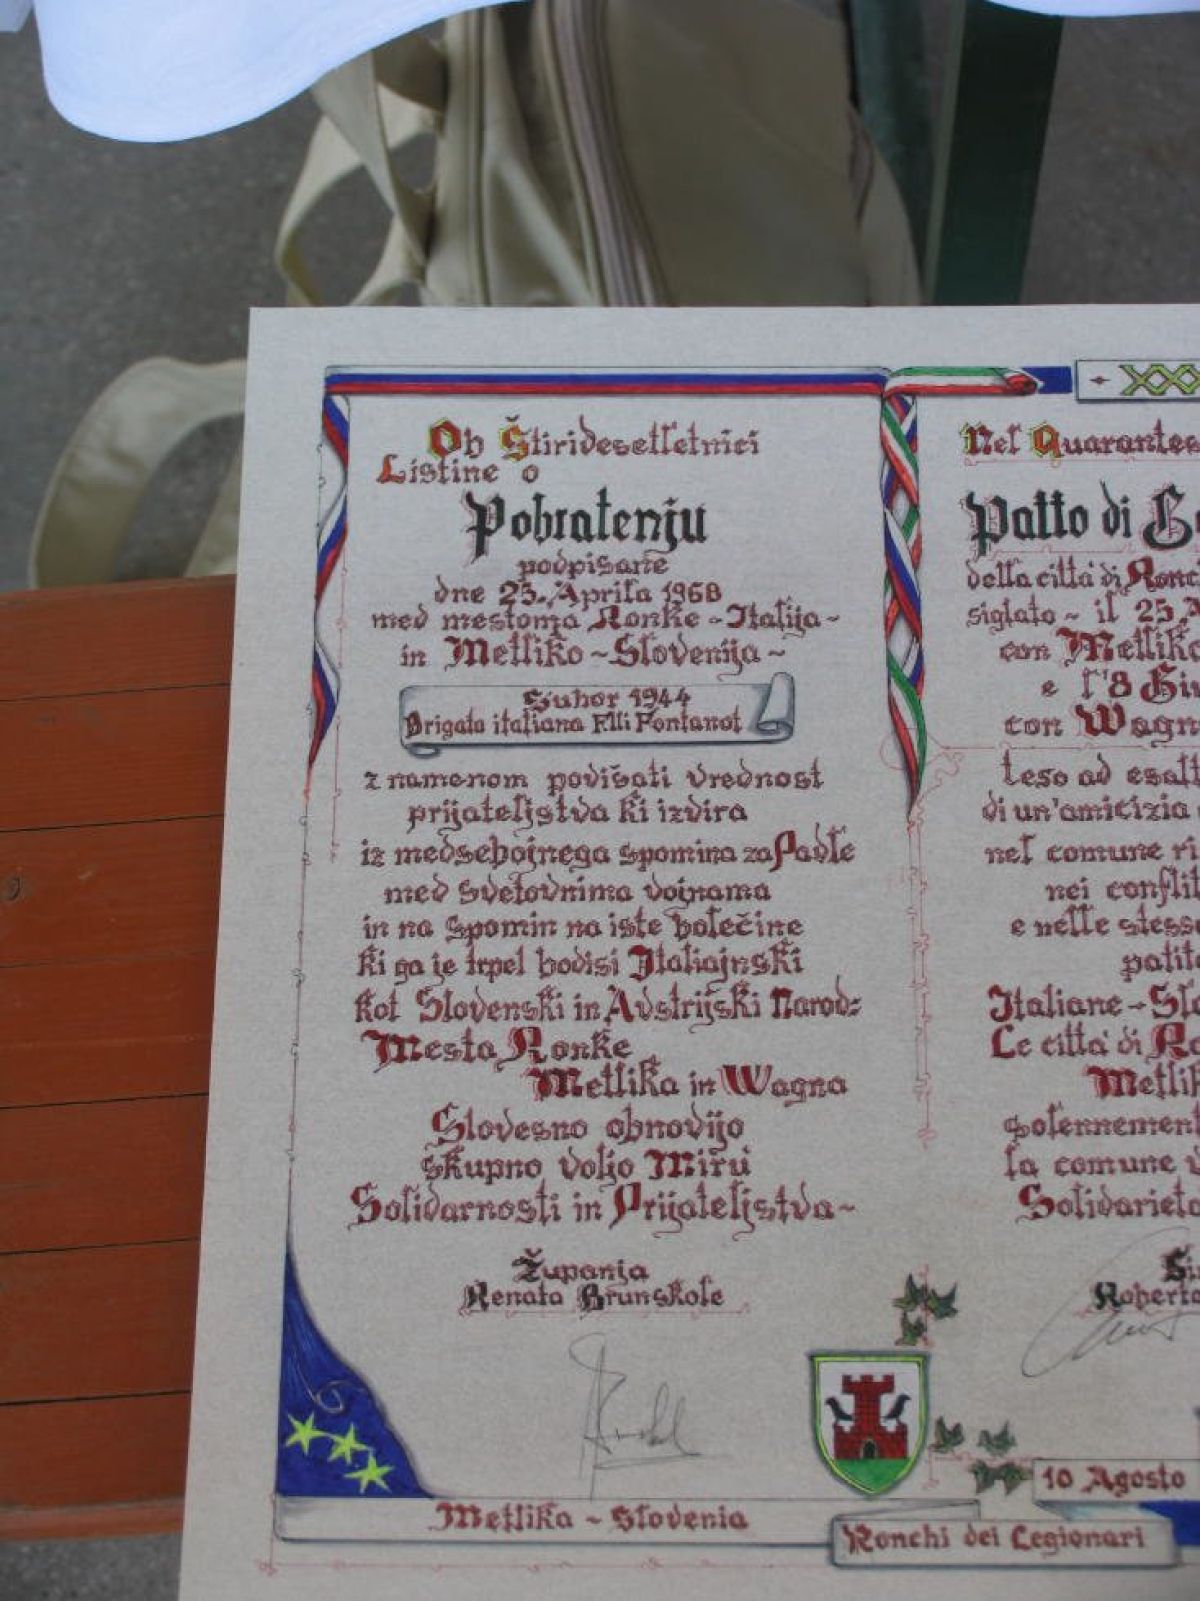 Ob Štiridesetletnici
Listine o
Pobratenju
podpisane
dne 25. Aprila 1968
med mestoma Ronke - Italija -
in Metliko - Slovenija -
Suhor 1944
Brigata italiana F.lli Fontanot
z namenom povišati vrednost
prijateljstva ki izvira
iz medsebojnega spomina za Padle
med svetovnima vojnama
in na spomin na iste bolečine
ki ga je trpel bodisi Italiajnski
kot Slovenski in Avstrijski Narod:
Mesta Ronke
Metlika in Wagna
Slovesno obnovijo
skupno voljo Miru
Solidarnosti in Prijateljstva -
Županja
Renata Brunskole
Metlika - Slovenia
XXX
Nel Quarantes
Patto di G
della città di Ronc
siglato - il 25 A
con Metlika
e l'8 Giu
con Wagn
teso ad esalt
di un'amicizia
nel comune ri
nei conflit
e nelle stess
patit
Italiane - Slo
Le città di Ro
Metlik
solennement
la comune v
Solidarietà
Sin
Roberto
10 Agosto
Ronchi dei Legionari